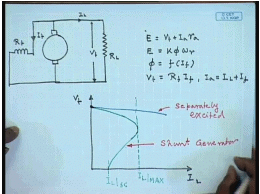 I_L
R_f
I_f
V_t
R_L
E = V_t + I_a r_a
E = K φ ω_r
φ = f(I_f)
V_t = R_f I_f , I_a = I_L + I_f
V_t
Separately
excited
Shunt Generator
I_L max
I_L